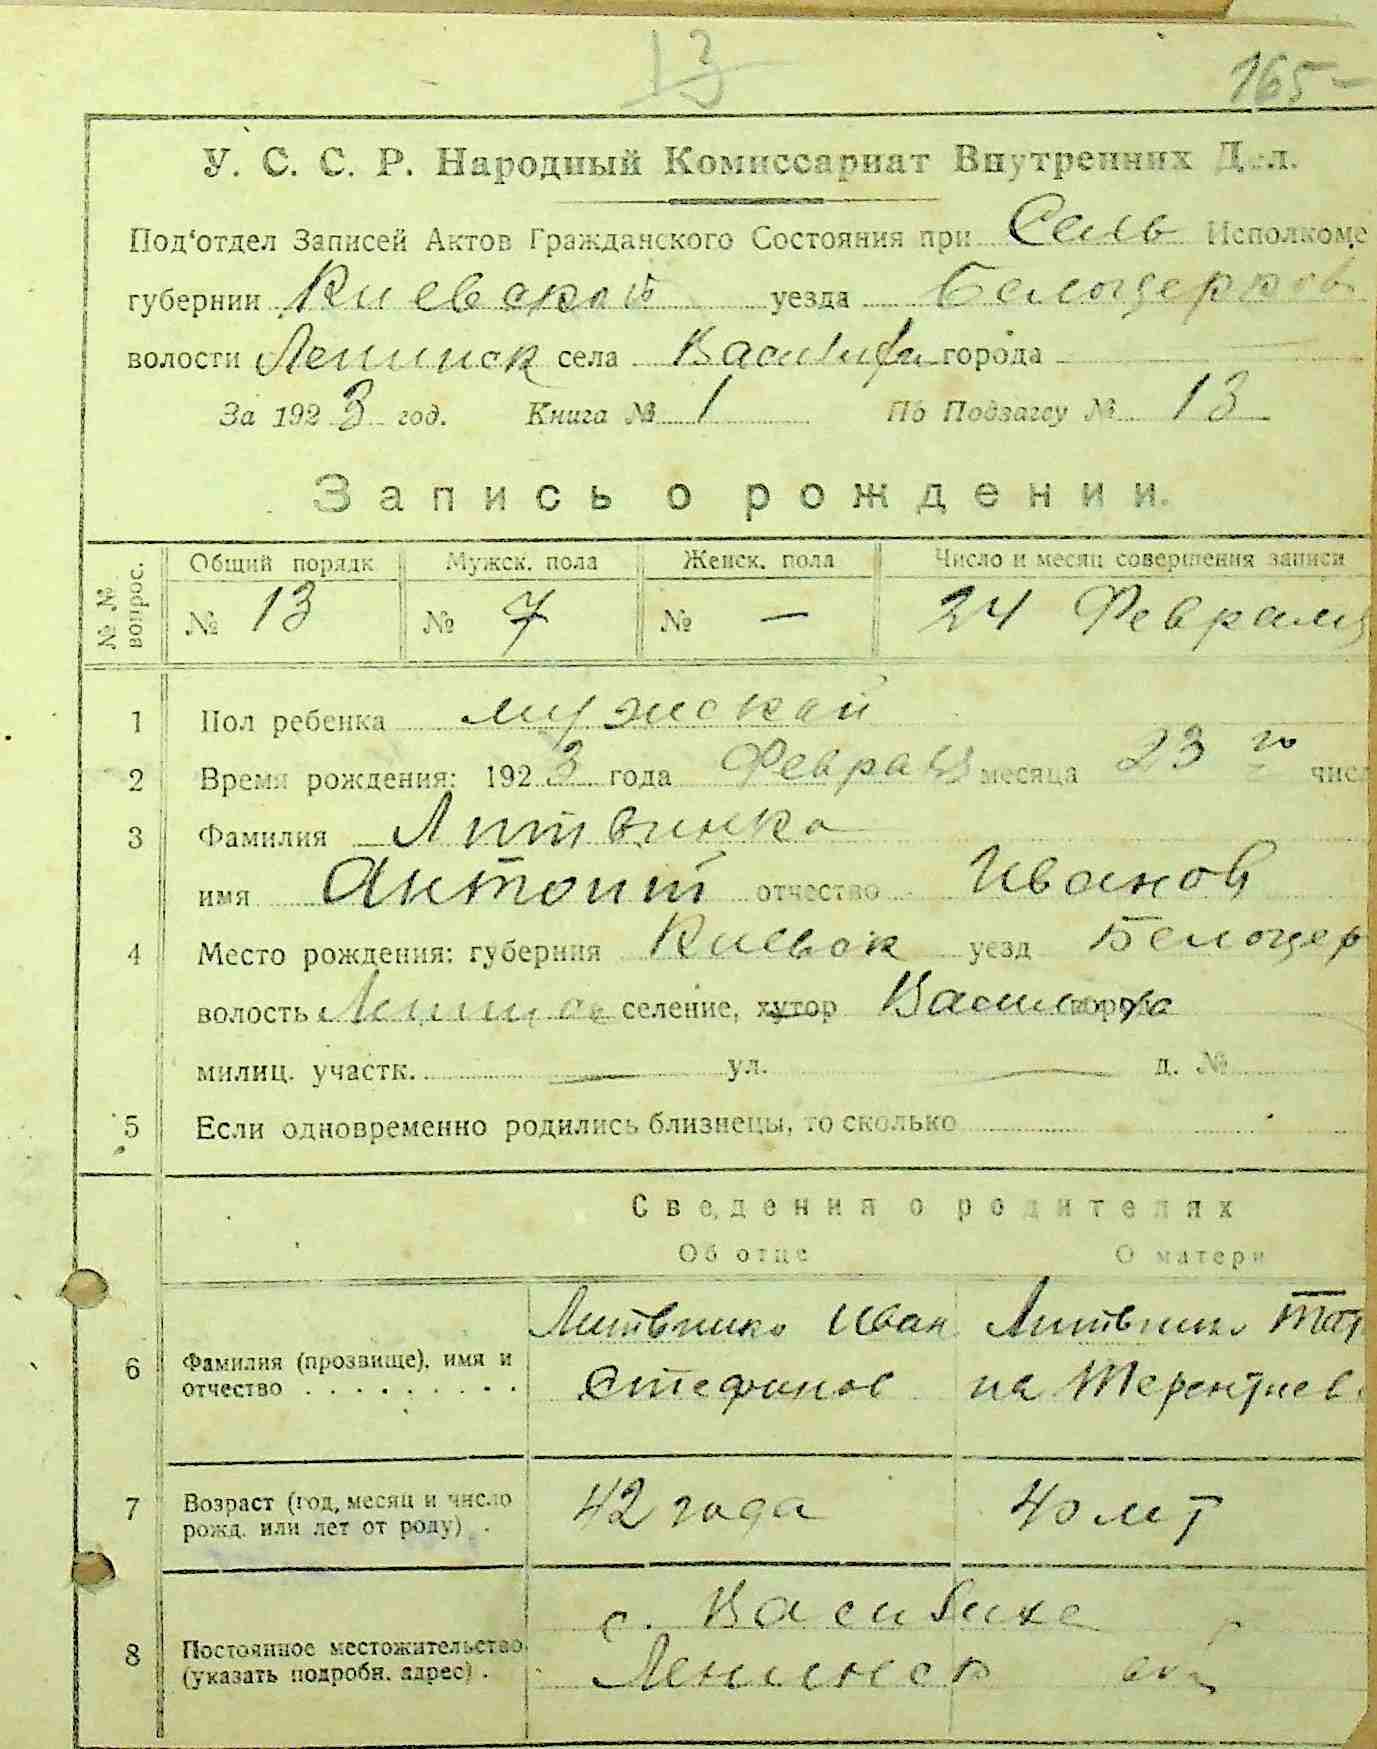 13
165-
У. С. С. Р. Народный Комиссариат Внутренних Дел.
Под'отдел Записей Актов Гражданского Состояния при Сель Исполкоме
губернии Киевской уезда Белоцерков
волости Ленинск села города
За 1923 год. Книга № 1 По Подзагсу № 13
Запись о рождении.
№ № вопрос.
Общий порядк Мужск. пола Женск. пола Число и месяц совершения записи
№ 13 № 7 № — 24 Февраля
1 Пол ребенка мужской
2 Время рождения: 1923 года Февраля месяца 23 го числ
3 Фамилия Литвинко
имя Антонит отчество Иванов
4 Место рождения: губерния Киевск уезд Белоцер
волость селение, хутор
милиц. участк. — ул. — д. №
5 Если одновременно родились близнецы, то сколько
Сведения о родителях
Об отце О матери
6 Фамилия (прозвище), имя и отчество . . . . . . . . . Литвинко Иван Стефанов Литвинко Татьяна Терентиев
7 Возраст (год, месяц и число рожд. или лет от роду) . 42 года 40 лет
8 Постоянное местожительство (указать подробн. адрес) . с.
Ленинск